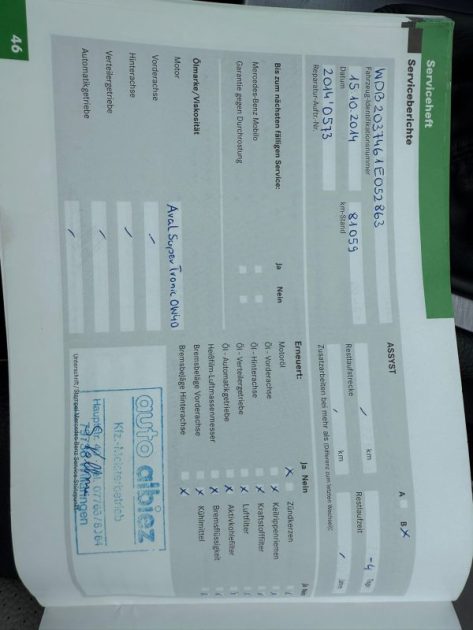 Serviceheft
Serviceberichte
WDB2037461E052863
Fahrzeug-Identifikationsnummer
15.10.2014
81059
Datum
km-Stand
2014'0573
Reparatur-Auftr.-Nr.
Bis zum nächsten fälligen Service:
Ja Nein
Mercedes-Benz Mobilo
Garantie gegen Durchrostung
Ölmarke/Viskosität
Motor
Aral Super Tronic 0W40
Vorderachse
Hinterachse
Verteilergetriebe
Automatikgetriebe
46
ASSYST
A
B X
Restlaufstrecke
/ km
Restlaufzeit
-4 Tage
Zusatzarbeiten bei mehr als (Differenz zum letzten Wechsel):
/ km
/ Jahre
Erneuert:
Ja Nein
Motoröl
Öl - Vorderachse
Öl - Hinterachse
Öl - Verteilergetriebe
Öl - Automatikgetriebe
Heißfilm-Luftmassenmesser
Bremsbeläge Vorderachse
Bremsbeläge Hinterachse
Ja Nein
Zündkerzen
Keilrippenriemen
Kraftstofffilter
Luftfilter
Aktivkohlefilter
Bremsflüssigkeit
Kühlmittel
auto albiez
Kfz.-Meisterbetrieb